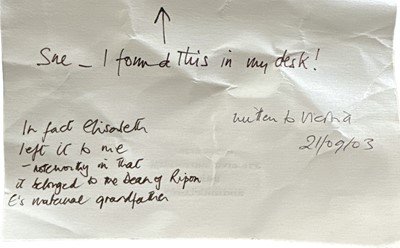 Sue - I found this in my desk!
In fact Elisabeth
left it to me
- noteworthy in that
it belonged to the Dean of Ripon
E's maternal grandfather
written to
21/09/03